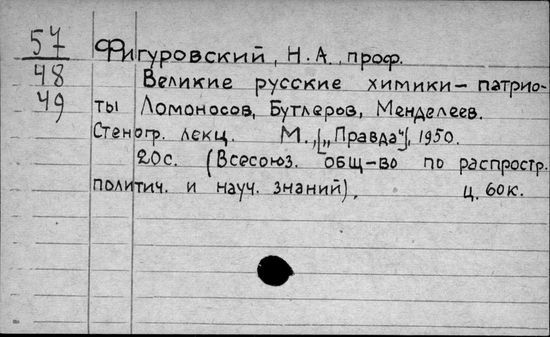 57
48
49
Фигуровский, Н.А., проф.
Великие русские химики – патрио-
ты Ломоносов, Бутлеров, Менделеев.
Стеногр. лекц. М., [„Правда“], 1950.
20с. (Всесоюз. общ-во по распростр.
политич. и науч. знаний).
ц. 60к.